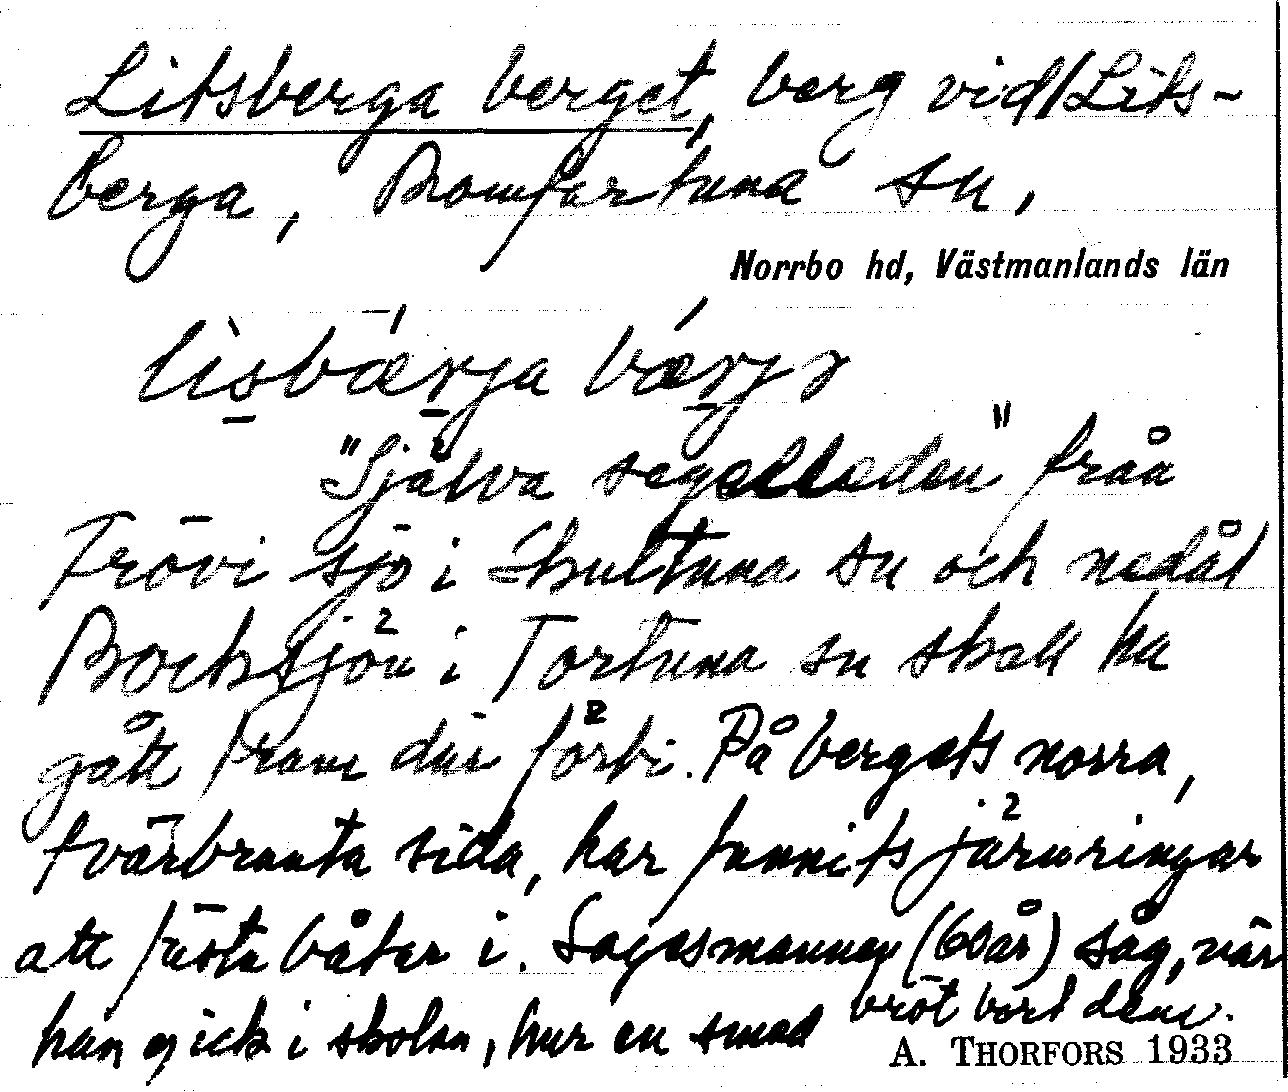 Litsberga berget, berg vid Lits-
berga, Romfartuna sn,
Norrbo hd, Västmanlands län
lìsbǽrja bǽrjɘ
"Själva segelleden" från
Frövi sjö i Skultuna sn och nedåt
Bocksjön i Tortuna sn skall ha
gått fram där förbi. På bergets norra,
tvärbranta sida, har funnits järnringar
att fästa båtar i. Sagesmannen (60 år) såg, när
han gick i skolan, hur en smed bröt bort dem.
A. THORFORS 1933